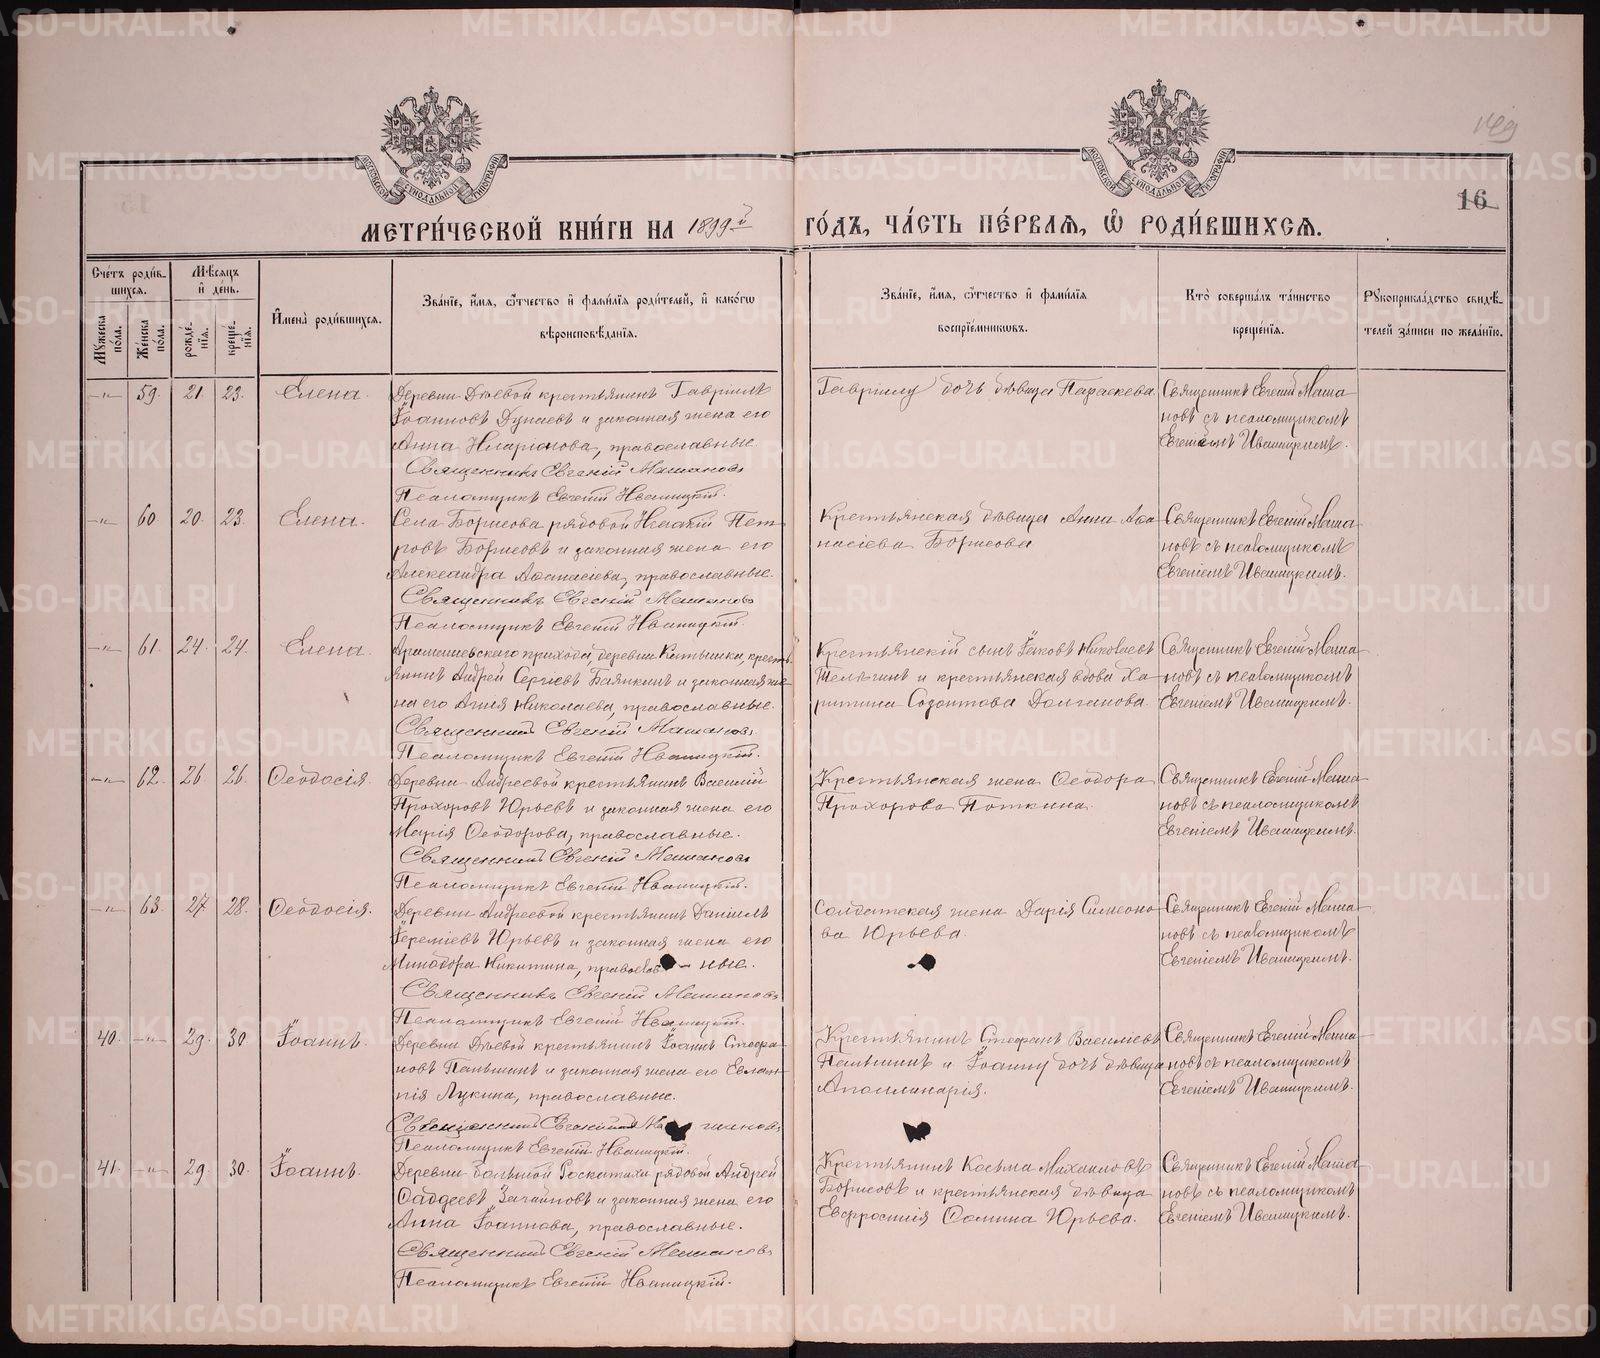 МЕТРИ́ЧЕСКОЙ КНИ́ГИ НА 1899й ГО́ДЪ, ЧА́СТЬ ПЕ́РВАѦ, Ѡ РОДИ́ВШИХСѦ.
16
Сче́тъ роди́вшихсѧ.
Мѣ́сѧцъ и де́нь.
Мꙋ́жеска по́ла.
Же́нска по́ла.
рожде́нїѧ.
креще́нїѧ.
И҆мена̀ роди́вшихсѧ.
Зва́нїе, и҆́мѧ, ѻ҆́тчество и҆ фами́лїѧ роди́телей, и҆ како́гѡ
вѣроисповѣ́данїѧ.
Зва́нїе, и҆́мѧ, ѻ҆́тчество и҆ фами́лїѧ
воспрїе́мникѡвъ.
Кто̀ соверша́лъ та́инство
креще́нїѧ.
Рꙋкоприкла́дство свидѣ́-
телей за́писи по жела́нїю.
-"- 59. 21. 23. Елена.
Деревни Дѣевой крестьянинъ Гавріилъ
Іоанновъ Дунаевъ и законная жена его
Анна Иларіонова, православные.
Священникъ Евгеній Машановъ
Псаломщикъ Евгеній Иваницкій.
Гавріилу дочь дѣвица Параскева.
Священникъ Евгеній Маша
новъ съ псаломщикомъ
Евгеніемъ Иваницкимъ.
-"- 60 20. 23. Елена.
Села Борисова рядовой Исаакій Пет
ровъ Борисовъ и законная жена его
Александра Аѳанасіева, православные.
Священникъ Евгеній Машановъ
Псаломщикъ Евгеній Иваницкій.
Крестьянская дѣвица Анна Аѳа
насіева Борисова
Священникъ Евгеній Маша
новъ съ псаломщикомъ
Евгеніемъ Иваницкимъ.
-"- 61. 24. 24. Елена.
Арамашевскаго прихода, деревни Катышки, кресть
янинъ Андрей Сергіевъ Баянкинъ и законная же
на его Агнія Николаева, православные.
Священникъ Евгеній Машановъ
Псаломщикъ Евгеній Иваницкій.
Крестьянскій сынъ Іаковъ Николаевъ
Шелягинъ и крестьянская вдова Ха
ритина Созонтова Долганова.
Священникъ Евгеній Маша
новъ съ псаломщикомъ
Евгеніемъ Иваницкимъ.
-"- 62. 26 26. Ѳеодосія.
Деревни Андреевой крестьянинъ Василій
Прохоровъ Юрьевъ и законная жена его
Марія Ѳеодорова, православные.
Священникъ Евгеній Машановъ
Псаломщикъ Евгеній Иваницкій.
Крестьянская жена Ѳеодора
Прохорова Поткина.
Священникъ Евгеній Маша
новъ съ псаломщикомъ
Евгеніемъ Иваницкимъ.
-"- 63. 27 28. Ѳеодосія.
Деревни Андреевой крестьянинъ Даніилъ
Іереміевъ Юрьевъ и законная жена его
Минодора Никитина, православ-ные.
Священникъ Евгеній Машановъ
Псаломщикъ Евгеній Иваницкій.
Солдатская жена Дарія Симеоно
ва Юрьева.
Священникъ Евгеній Маша
новъ съ псаломщикомъ
Евгеніемъ Иваницкимъ.
40. -"- 29. 30 Іоаннъ.
Деревни Дѣевой крестьянинъ Іоаннъ Стефа
новъ Паньшинъ и законная жена его Евлам
пія Лукина, православные.
Священникъ Евгеній Машановъ
Псаломщикъ Евгеній Иваницкій.
Крестьянинъ Стефанъ Василіевъ
Паньшинъ и Іоанну дочь дѣвица
Аполлинарія.
Священникъ Евгеній Маша
новъ съ псаломщикомъ
Евгеніемъ Иваницкимъ.
41. -"- 29 30. Іоаннъ.
Деревни Большой Роскатихи рядовой Андрей
Ѳаддеевъ Загайновъ и законная жена его
Анна Іоаннова, православные.
Священникъ Евгеній Машановъ
Псаломщикъ Евгеній Иваницкій.
Крестьянинъ Косьма Михаиловъ
Борисовъ и крестьянская дѣвица
Евфросинія Ѳомина Юрьева.
Священникъ Евгеній Маша
новъ съ псаломщикомъ
Евгеніемъ Иваницкимъ.
METRIKI.GASO-URAL.RU